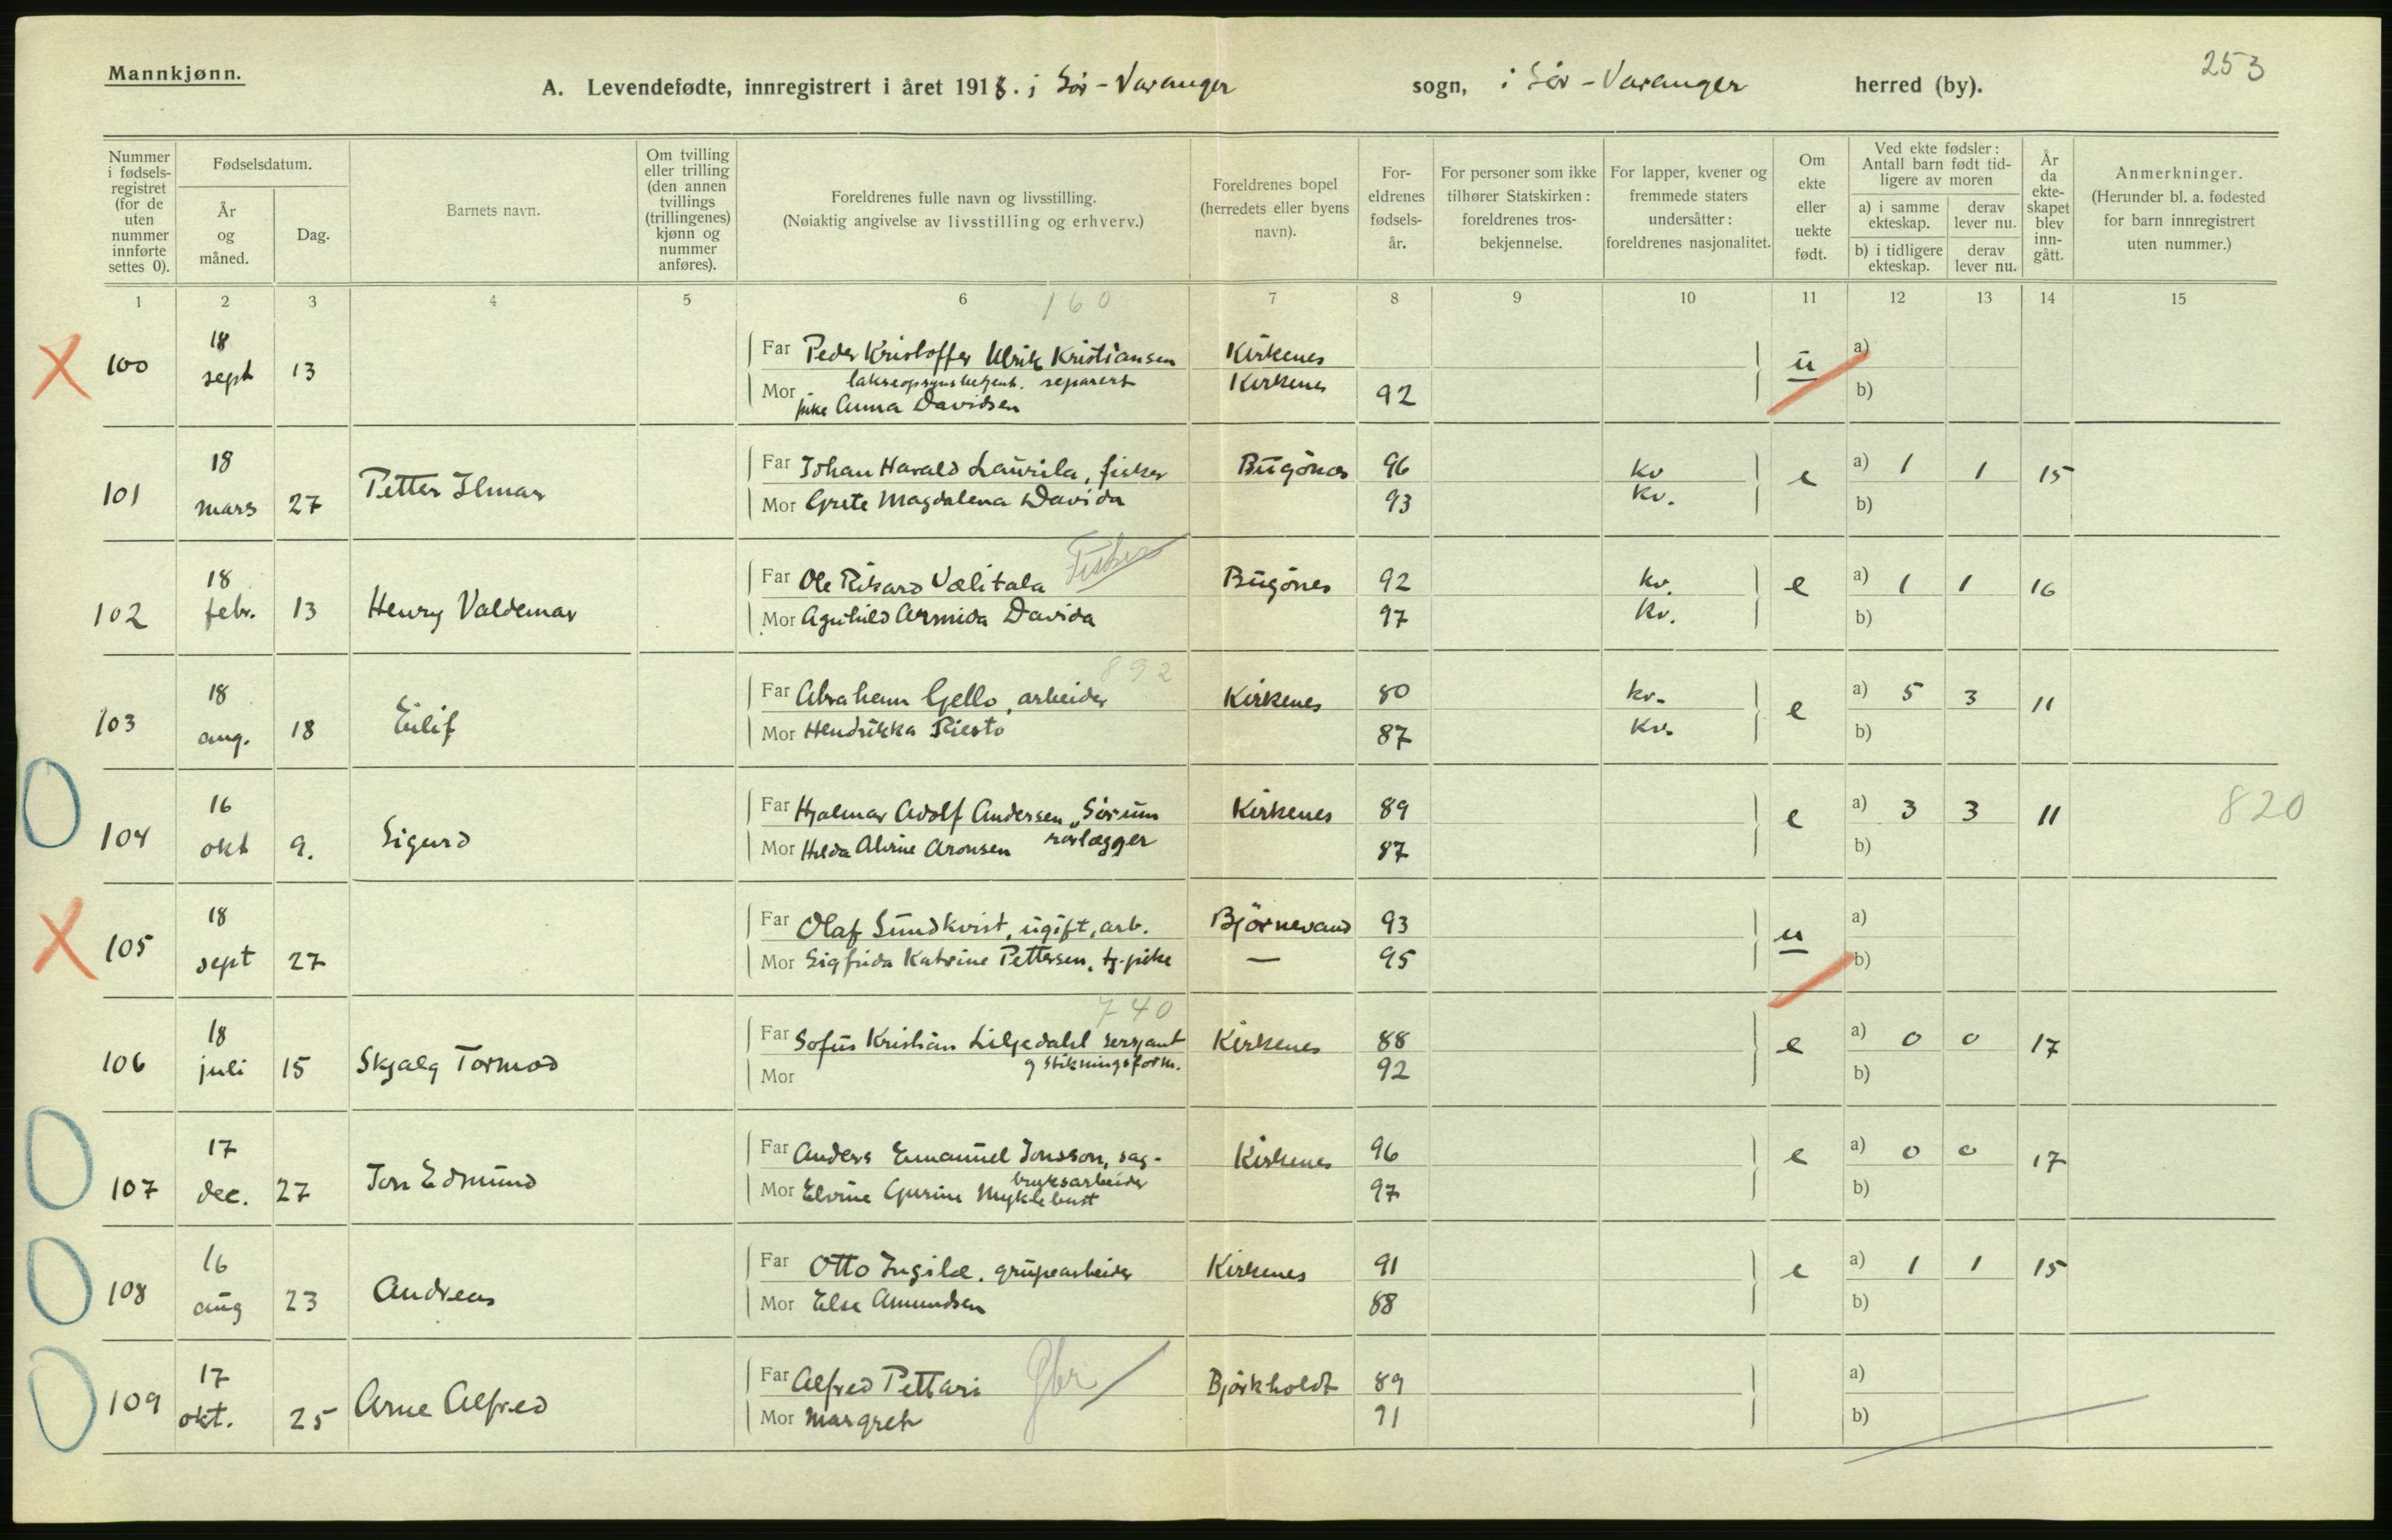 253
Mannkjønn.
A. Levendefødte, innregistrert i året 1918. i Sör-Varanger sogn, i Sör-Varanger herred (by).
Nummer i fødsels-registret (for de uten nummer innførte settes 0).
Fødselsdatum.
År og måned.
Dag.
Barnets navn.
Om tvilling eller trilling (den annen tvillings (trillingenes) kjønn og nummer anføres).
Foreldrenes fulle navn og livsstilling.
(Nøiaktig angivelse av livsstilling og erhverv.)
Foreldrenes bopel (herredets eller byens navn).
For-eldrenes fødsels-år.
For personer som ikke tilhører Statskirken: foreldrenes tros-bekjennelse.
For lapper, kvener og fremmede staters undersåtter: foreldrenes nasjonalitet.
Om ekte eller uekte født.
Ved ekte fødsler: Antall barn født tid-ligere av moren
a) i samme ekteskap.
derav lever nu.
b) i tidligere ekteskap.
derav lever nu.
År da ekte-skapet blev inn-gått.
Anmerkninger.
(Herunder bl. a. fødested for barn innregistrert uten nummer.)
1 2 3 4 5 6 7 8 9 10 11 12 13 14 15
160
X 100 18 sept 13 Far Peder Kristoffer Ulrik Kristiansen Kirkenes u a)
separert
Mor pike Anna Davidsen Kirkenes 92 b)
101 18 mars 27 Petter Ilmar Far Johan Harald Laurila, fisker Bugönes 96 kv e a) 1 1 15
Mor Grete Magdalena Davida 93 kv. b)
Fisker
102 18 febr. 13 Henry Valdemar Far Ole Rikard Välitala Bugönes 92 kv. e a) 1 1 16
Mor Agnhild Armida Davida 97 kv. b)
892
103 18 aug. 18 Eilif Far Abraham Gello, arbeider Kirkenes 80 kv. e a) 5 3 11
Mor Hendrikka Riesto 87 kv. b)
104 16 okt 9. Sigurd Far Hjalmar Adolf Andersen Sörum Kirkenes 89 e a) 3 3 11 820
rörlægger
Mor Hilda Alvine Aronsen 87 b)
X 105 18 sept 27 Far Olaf Sundkvist, ugift, arb. Björnevand 93 u a)
Mor Sigfrida Katrine Pettersen, tj. pike — 95 b)
740
106 18 juli 15 Skjalg Tormod Far Sofus Kristian Liljedahl sersjant Kirkenes 88 e a) 0 0 17
og stikningsform.
Mor 92 b)
107 17 dec. 27 Jon Edmund Far Anders Emanuel Jonsson, sag- Kirkenes 96 e a) 0 0 17
bruksarbeider
Mor Elvine Gurine Myklebust 97 b)
108 16 aug 23 Andreas Far Otto Ingilæ, grupearbeider Kirkenes 91 e a) 1 1 15
Mor Else Amundsen 88 b)
109 17 okt. 25 Arne Alfred Far Alfred Pettari Gbr Björkholdt 89 a)
Mor Margreth 91 b)